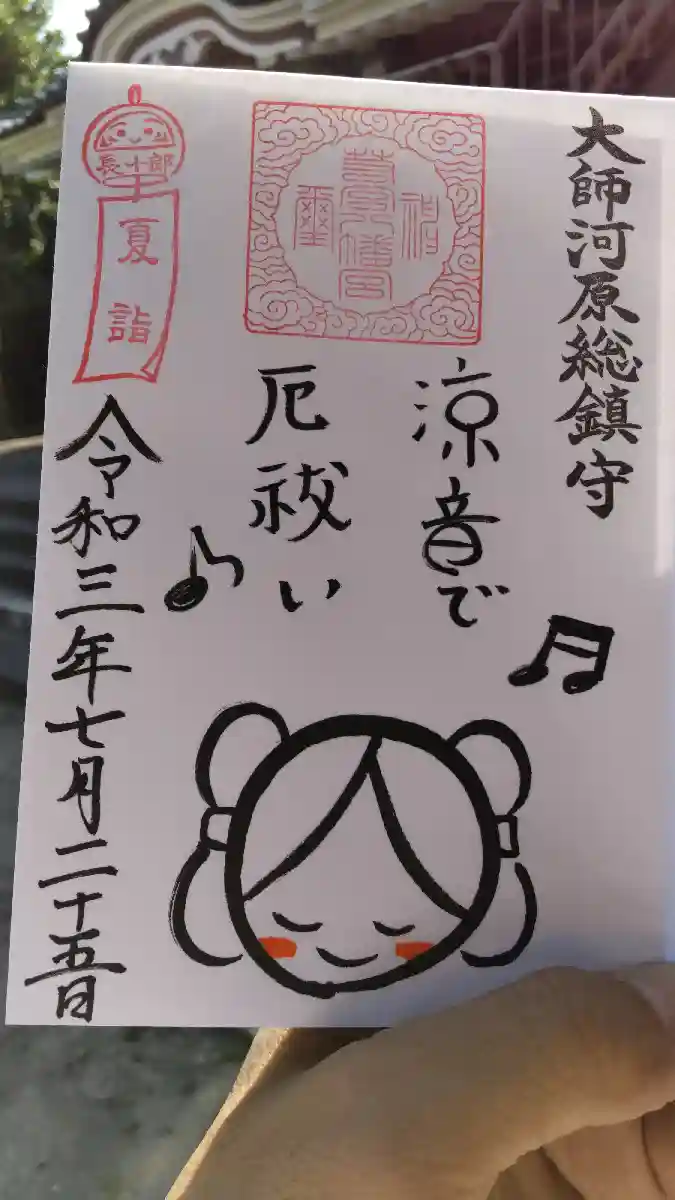 大師河原総鎮守
涼音で
厄祓い
長十郎
夏詣
令和三年七月二十五日